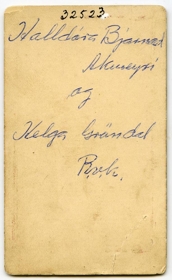 32523
Halldóra Bjarnad
Akureyri
og
Helga Gröndal
Rvk.